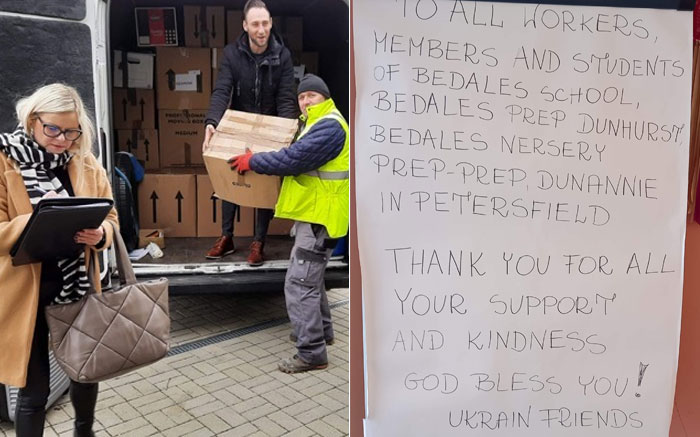 TO ALL WORKERS,
MEMBERS AND STUDENTS
OF BEDALES SCHOOL,
BEDALES PREP DUNHURST,
BEDALES NERSERY
PREP-PREP, DUNANNIE
IN PETERSFIELD
THANK YOU FOR ALL
YOUR SUPPORT
AND KINDNESS
GOD BLESS YOU!
UKRAIN FRIENDS
MEDIUM